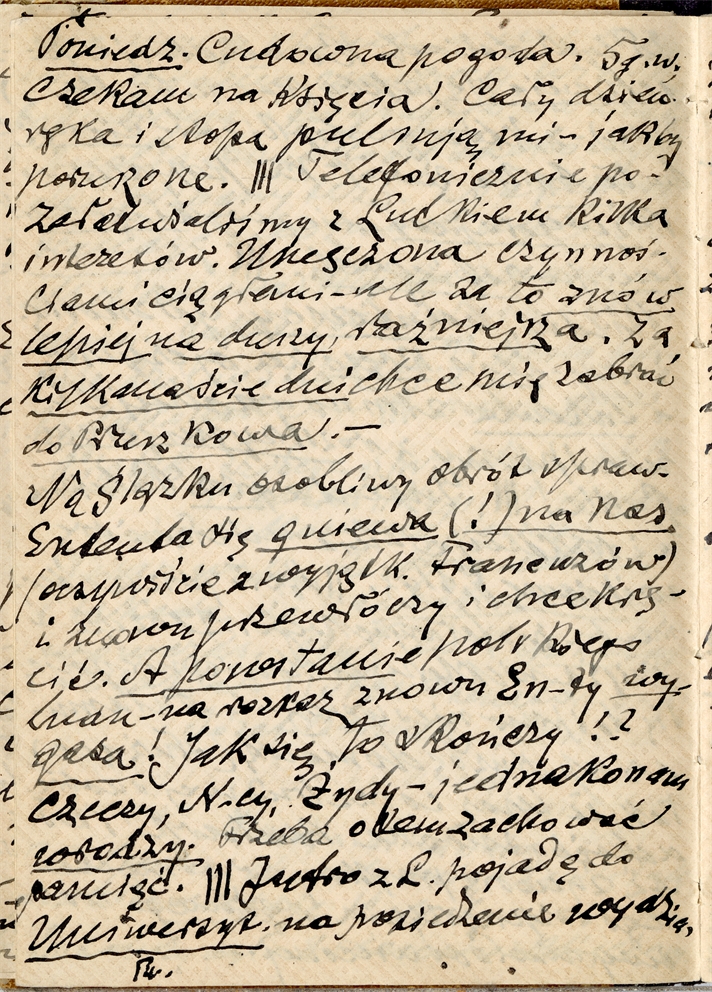 Poniedz. Cudowna pogoda. 5 g. w.
Czekam na Księcia. Cały dzień
ręka i stopa pulsują mi - jakby
poruszone. ||| Telefonicznie po-
załatwialiśmy z Ludkiem kilka
interesów. Umęczona czynnoś-
ciami ciągłemi - ale za to znów
lepiej na duszy, raźniejsza. Za
kilkanaście dni chce mię zabrać
do Pruszkowa. —
Na Śląsku osobliwy obrót spraw.
Ententa się gniewa (!) na nas
(oczywiście z wyjątk. Francuzów)
i znowu przewłóczy i chce krę-
cić. A powstanie polskiego
na rozkaz znowu En-ty wy-
gasa! Jak się to skończy!?
Czeczy, N-cy, Żydy - jednako nam
wrodzy. Trzeba o tem zachować
pamięć. ||| Jutro z L. pojadę do
Uniwersyt. na posiedzenie wydzia-